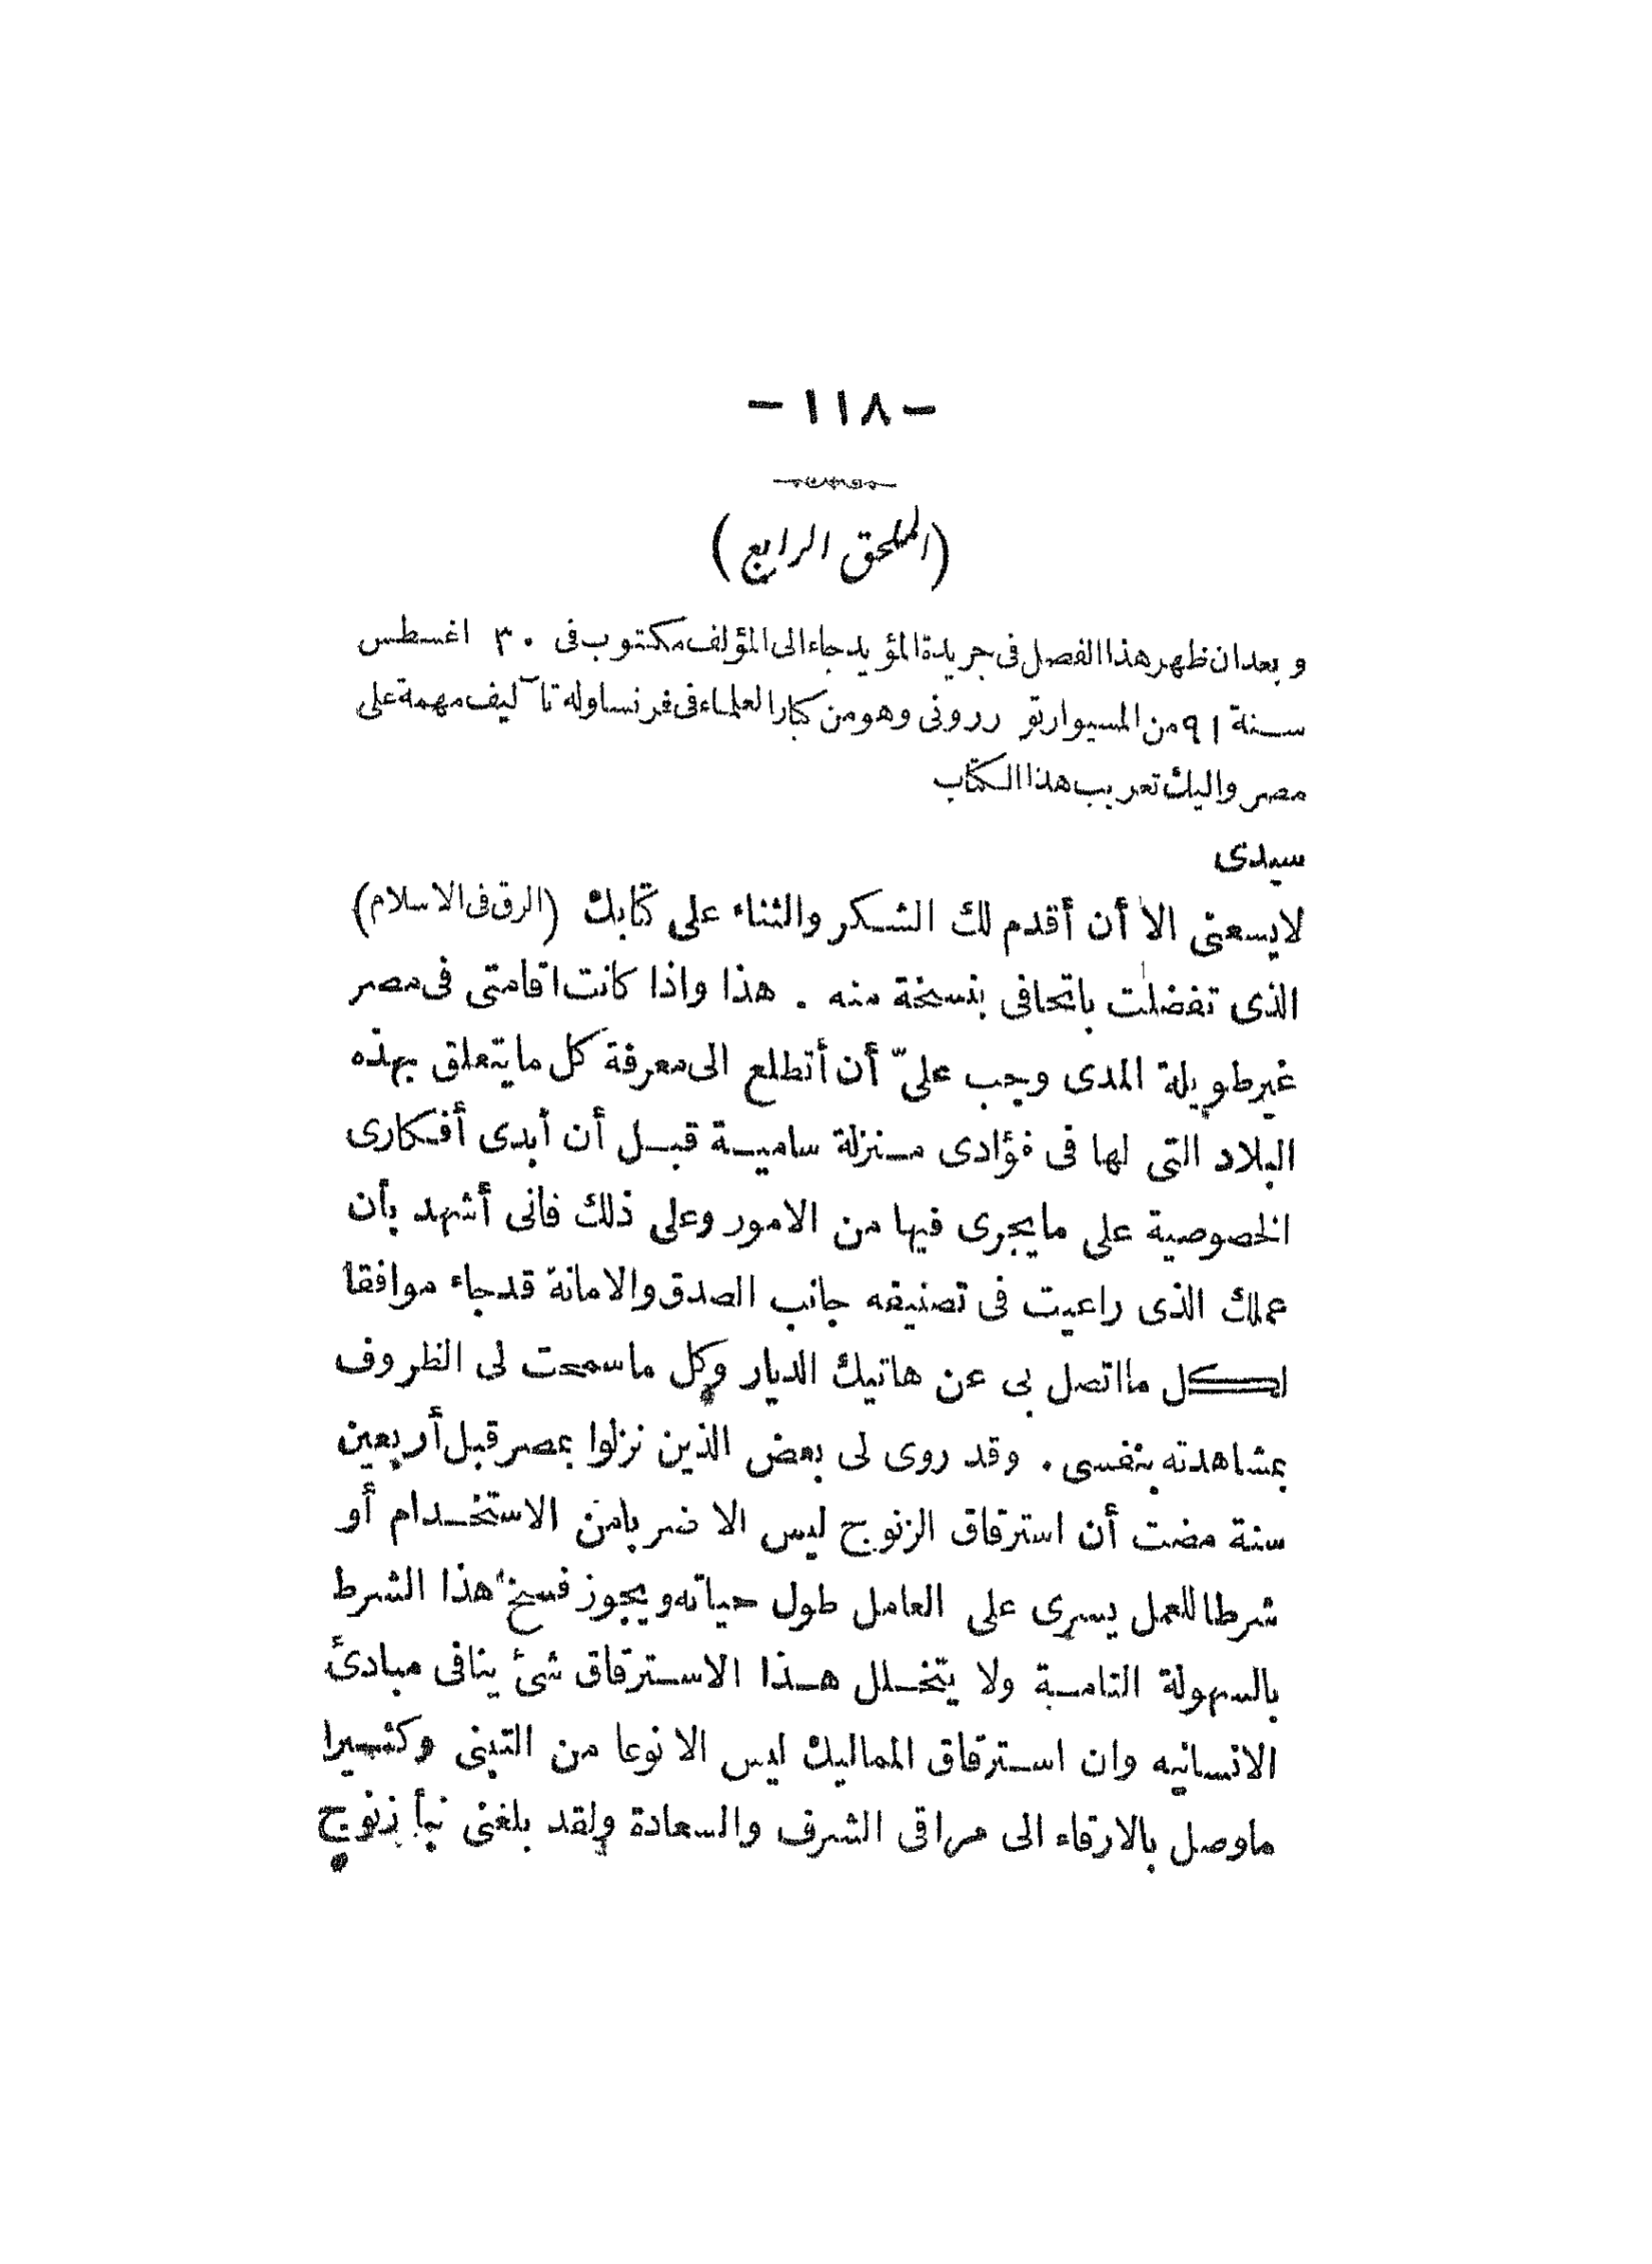 - ١١٨ -
(الملحق الرابع)
وبعد ان ظهر هذا الفصل فى جريدة المؤيد جاء الى المؤلف مكتوب فى ٣٠ اغسطس
سنة ٩١ من المسيو ارتو ررونى وهو من كبار العلماء فى فرنسا وله تآليف مهمة على
مصر واليك تعريب هذا الكتاب
سيدى
لايسعنى الا أن أقدم لك الشكر والثناء على كتابك (الرق فى الاسلام)
الذى تفضلت باتحافى بنسخة منه . هذا واذا كانت اقامتى فى مصر
غير طويلة المدى وجب علىّ أن أتطلع الى معرفة كل ما يتعلق بهذه
البلاد التى لها فى فؤادى منزلة سامية قبل أن أبدى أفكارى
الخصوصية على ما يجرى فيها من الامور وعلى ذلك فانى أشهد بأن
عملك الذى راعيت فى تصنيفه جانب الصدق والامانة قد جاء موافقا
لكل ما اتصل بى عن هاتيك الديار وكل ما سمحت لى الظروف
بمشاهدته بنفسى . وقد روى لى بعض الذين نزلوا بمصر قبل أربعين
سنة مضت أن استرقاق الزنوج ليس الا ضربا من الاستخدام أو
شرطا للعمل يسرى على العامل طول حياته ويجوز فسخ هذا الشرط
بالسهولة التامة ولا يتخلل هذا الاسترقاق شئ ينافى مبادئ
الانسانيه وان استرقاق المماليك ليس الا نوعا من التبنى وكثيرا
ماوصل بالارقاء الى مراقى الشرف والسعادة ولقد بلغنى نبأ زنوج